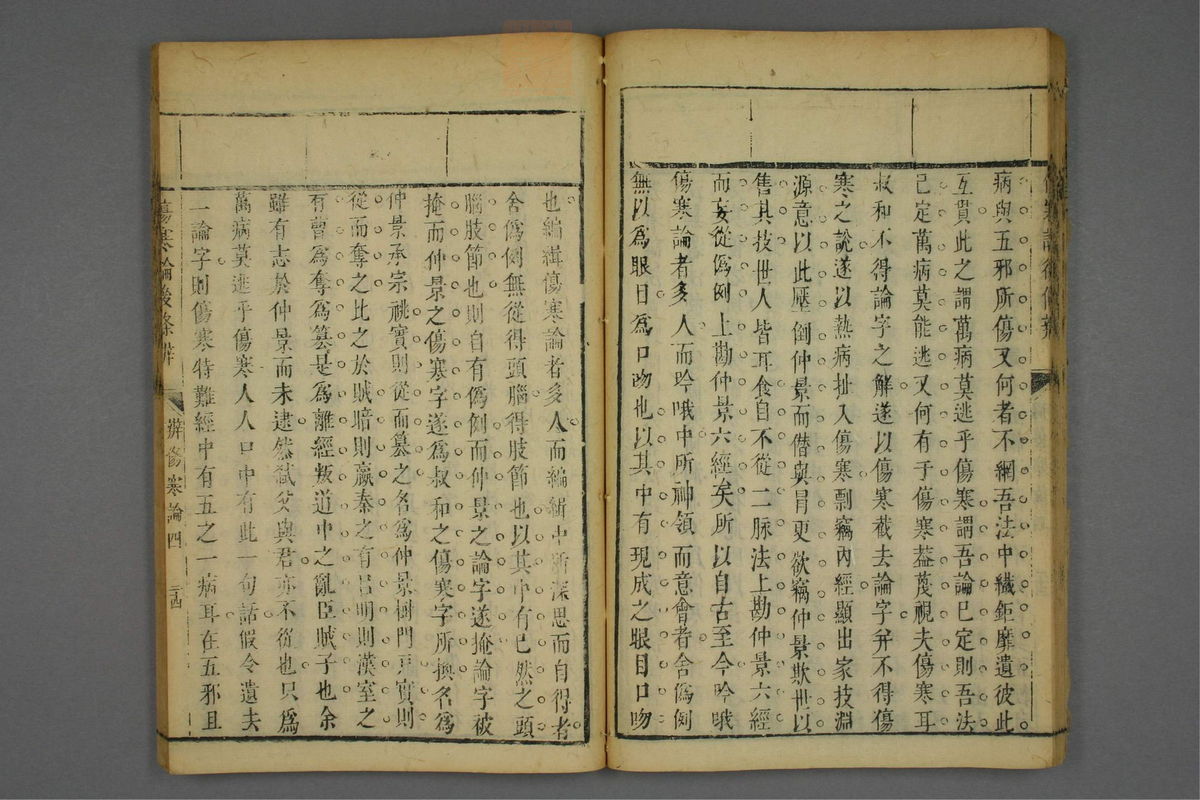 病與五邪所傷又何者不網吾法中纖鉅靡遺彼此
互貫此之謂萬病莫逃乎傷寒謂吾論已定則吾法
已定萬病莫能逃又何有于傷寒葢蔑視夫傷寒耳
叔和不得論字之解遂以傷寒截去論字幷不得傷
寒之說遂以熱病扯入傷寒剽竊內經顯出家技淵
源意以此壓倒仲景而僭與冒更欲竊仲景欺世以
售其技世人皆耳食自不從二脉法上勘仲景六經
而妄從僞例上勘仲景六經矣所以自古至今吟哦
傷寒論者多人而吟哦中所神領而意會者舍僞例
無以爲眼目爲口吻也以其中有現成之眼目口吻
也編緝傷寒論者多人而編緝中所深思而自得者
舍僞例無從得頭腦得肢節也以其中有已然之頭
腦肢節也則自有僞例而仲景之論字遂掩論字被
掩而仲景之傷寒字遂爲叔和之傷寒字所換名爲
仲景承宗祧實則從而簒之名爲仲景樹門戸實則
從而奪之比之於賊暗則嬴秦之有呂明則漢室之
有曹爲奪爲簒是爲離經叛道中之亂臣賊子也余
雖有志於仲景而未逮然弑父與君亦不從也只爲
萬病莫逃乎傷寒人人口中有此一句話假令遺夫
一論字則傷寒特難經中有五之一病耳在五邪且
傷寒論後條辨
辨傷寒論四
三十四